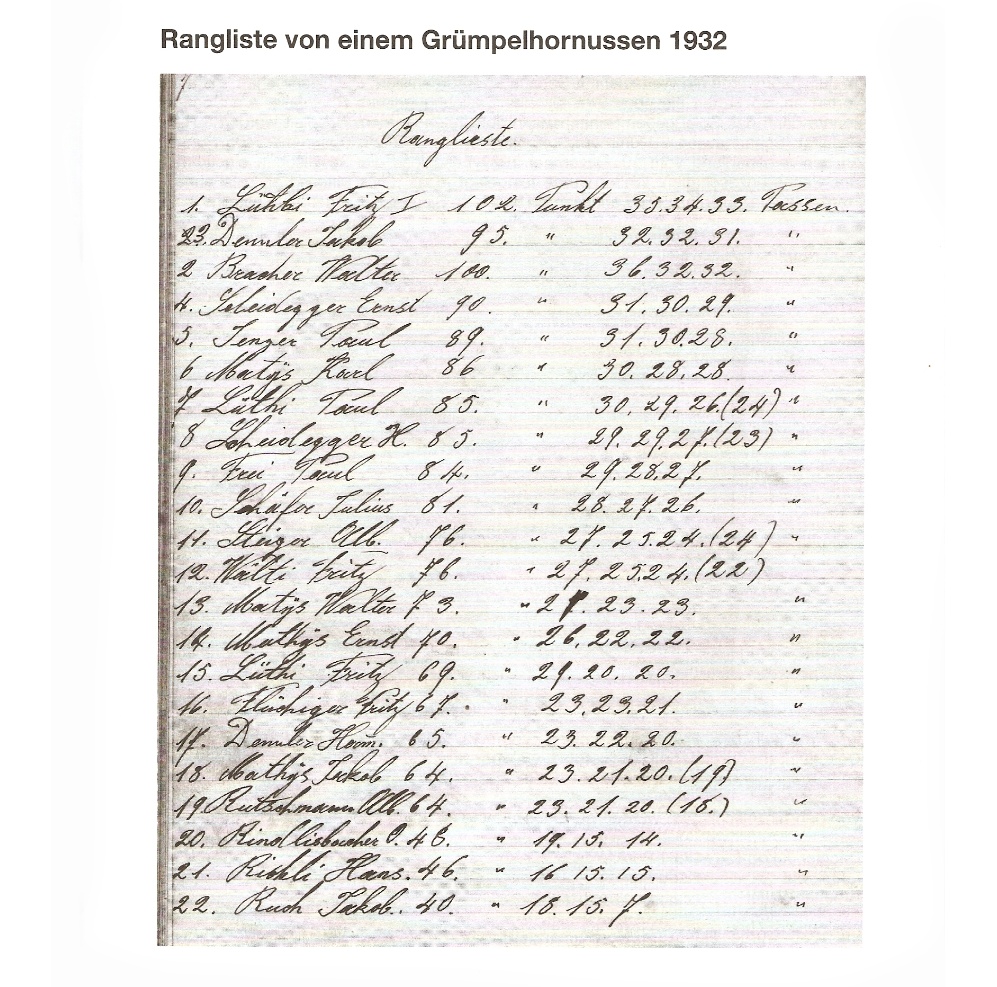 Rangliste von einem Grümpelhornussen 1932
Ranglieste.
1. Lüthi Fritz I 102 Punkt 35.34.33. Tassen.
23. Dennler Jakob 95. " 32.32.31. "
2 Bracher Walter 100. " 36.32.32. "
4. Scheidegger Ernst 90. " 31.30.29. "
5. Jenzer Paul 89. " 31.30.28. "
6 Matÿs Karl 86 " 30.28.28. "
7 Lüthi Paul 85. " 30.29.26.(24) "
8 Scheidegger H. 85. " 29.29.27.(23) "
9. Frei Paul 84. " 29.28.27. "
10. Schäfer Julius 81. " 28.27.26. "
11. Steiger Alb. 76. " 27.25.24.(24) "
12. Wälti Fritz 76. " 27.25.24.(22)
13. Matÿs Walter 73. " 27.23.23. "
14. Mathÿs Ernst 70. " 26.22.22. "
15. Lüthi Fritz 69. " 29.20.20. "
16. Flückiger Fritz 67. " 23.23.21. "
17. Dennler Herm. 65. " 23.22.20. "
18. Mathÿs Jakob 64. " 23.21.20.(19) "
19 Rutschmann Alb. 64. " 23.21.20.(16.) "
20. Rindlisbacher O. 48. " 19.15.14. "
21. Rickli Hans. 46. " 16 15.15. "
22. Ruch Jakob. 40. " 18.15.7. "